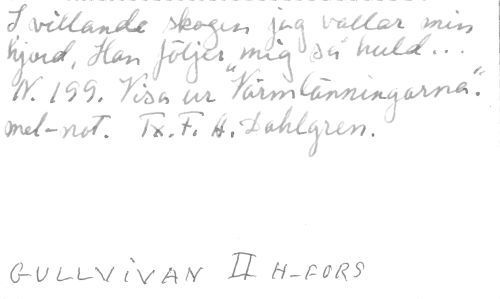 I villande skogen jag vallar min
hjord, Han följer mig så huld...
N. 199. Visa ur "Värmlänningarna".
mel-not. Tx. F. A. Dahlgren.
GULLVIVAN II H-FORS